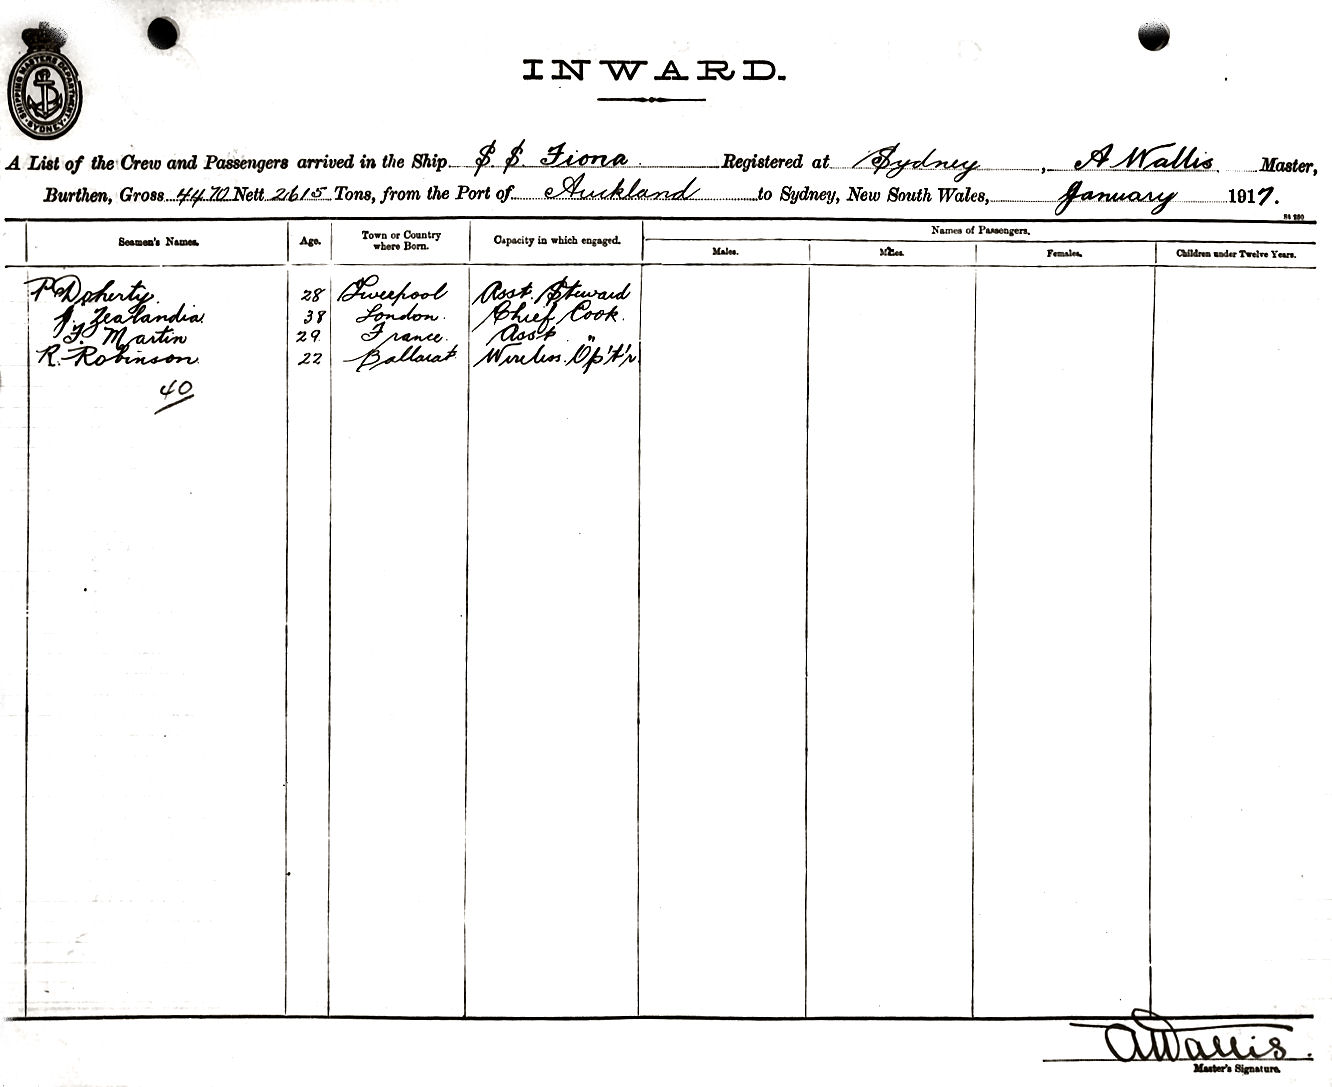 SHIPPING MASTERS DEPARTMENT SYDNEY
INWARD.
A List of the Crew and Passengers arrived in the Ship S. S. Fiona Registered at Sydney, A Wallis Master,
Burthen, Gross 4470 Nett 2615 Tons, from the Port of Auckland to Sydney, New South Wales, January 1917.
Seamen's Names. Age. Town or Country where Born. Capacity in which engaged. Names of Passengers.
Males. Males. Females. Children under Twelve Years.
P Doherty. 28 Liverpool Asst. Steward
J. Zealandia. 38 London. Chief Cook.
F. Martin 29 France. Asst "
R. Robinson. 22 Ballarat Wireless. Op't'r
40
A Wallis.
Master's Signature.